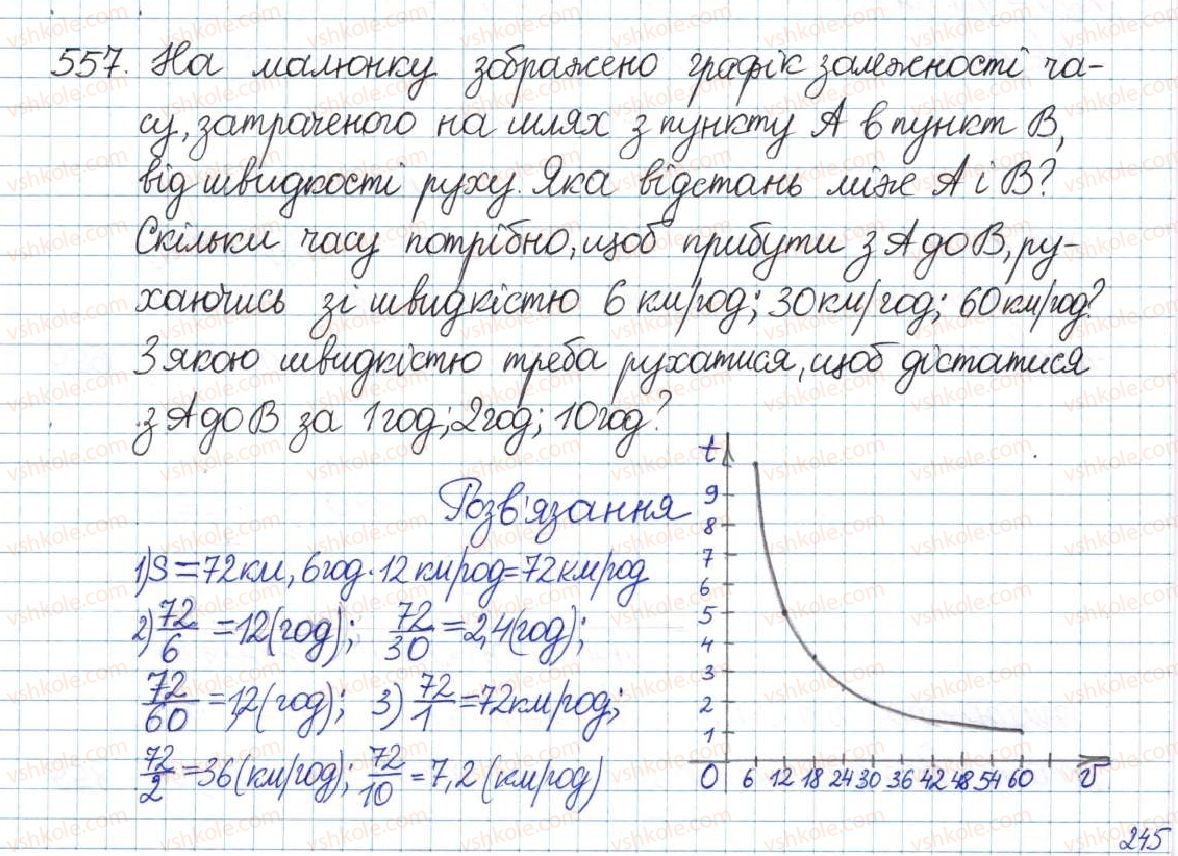 557. На малюнку зображено графік залежності ча-
су, затраченого на шлях з пункту А в пункт В,
від швидкості руху. Яка відстань між А і В?
Скільки часу потрібно, щоб прибути з А до В, ру-
хаючись зі швидкістю 6 км/год; 30 км/год; 60 км/год?
З якою швидкістю треба рухатися, щоб дістатися
з А до В за 1 год; 2 год; 10 год?
Розв'язання
1) S = 72 км, 6 год · 12 км/год = 72 км/год
2) 72/6 = 12 (год); 72/30 = 2,4 (год);
72/60 = 1,2 (год); 3) 72/1 = 72 км/год;
72/2 = 36 (км/год); 72/10 = 7,2 (км/год)
t
9
8
7
6
5
4
3
2
1
0 6 12 18 24 30 36 42 48 54 60 v
245
vshkole.com